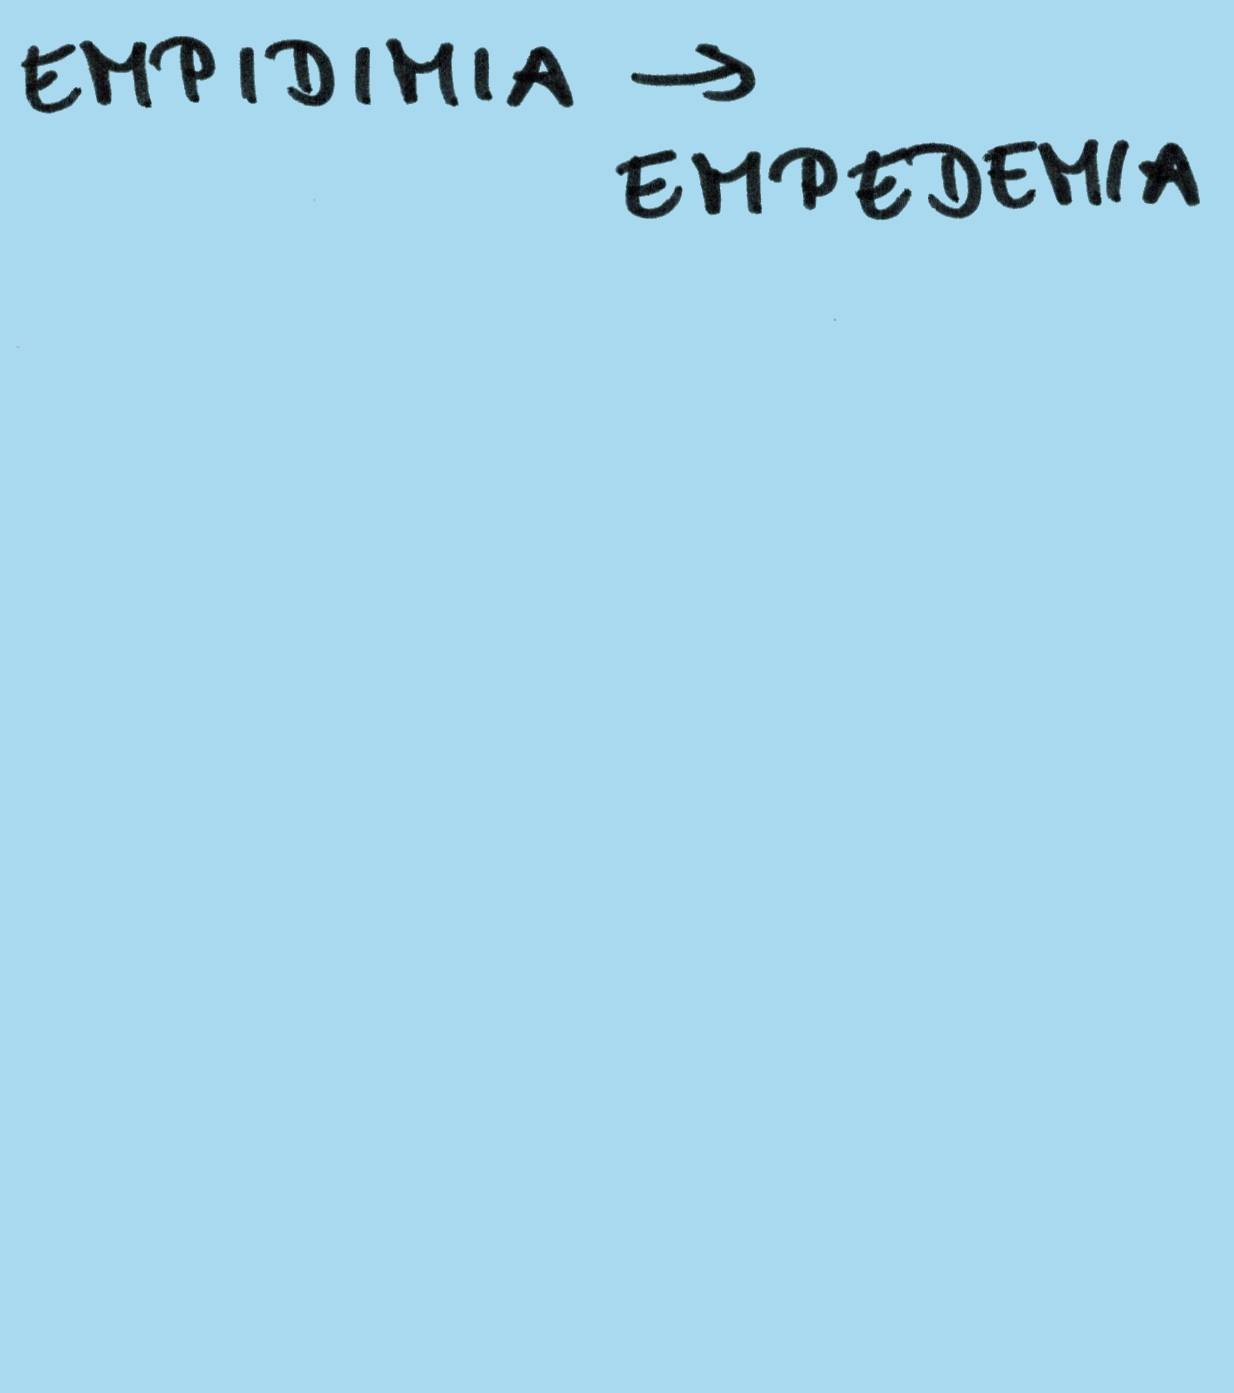 EMPIDIMIA →
EMPEDEMIA